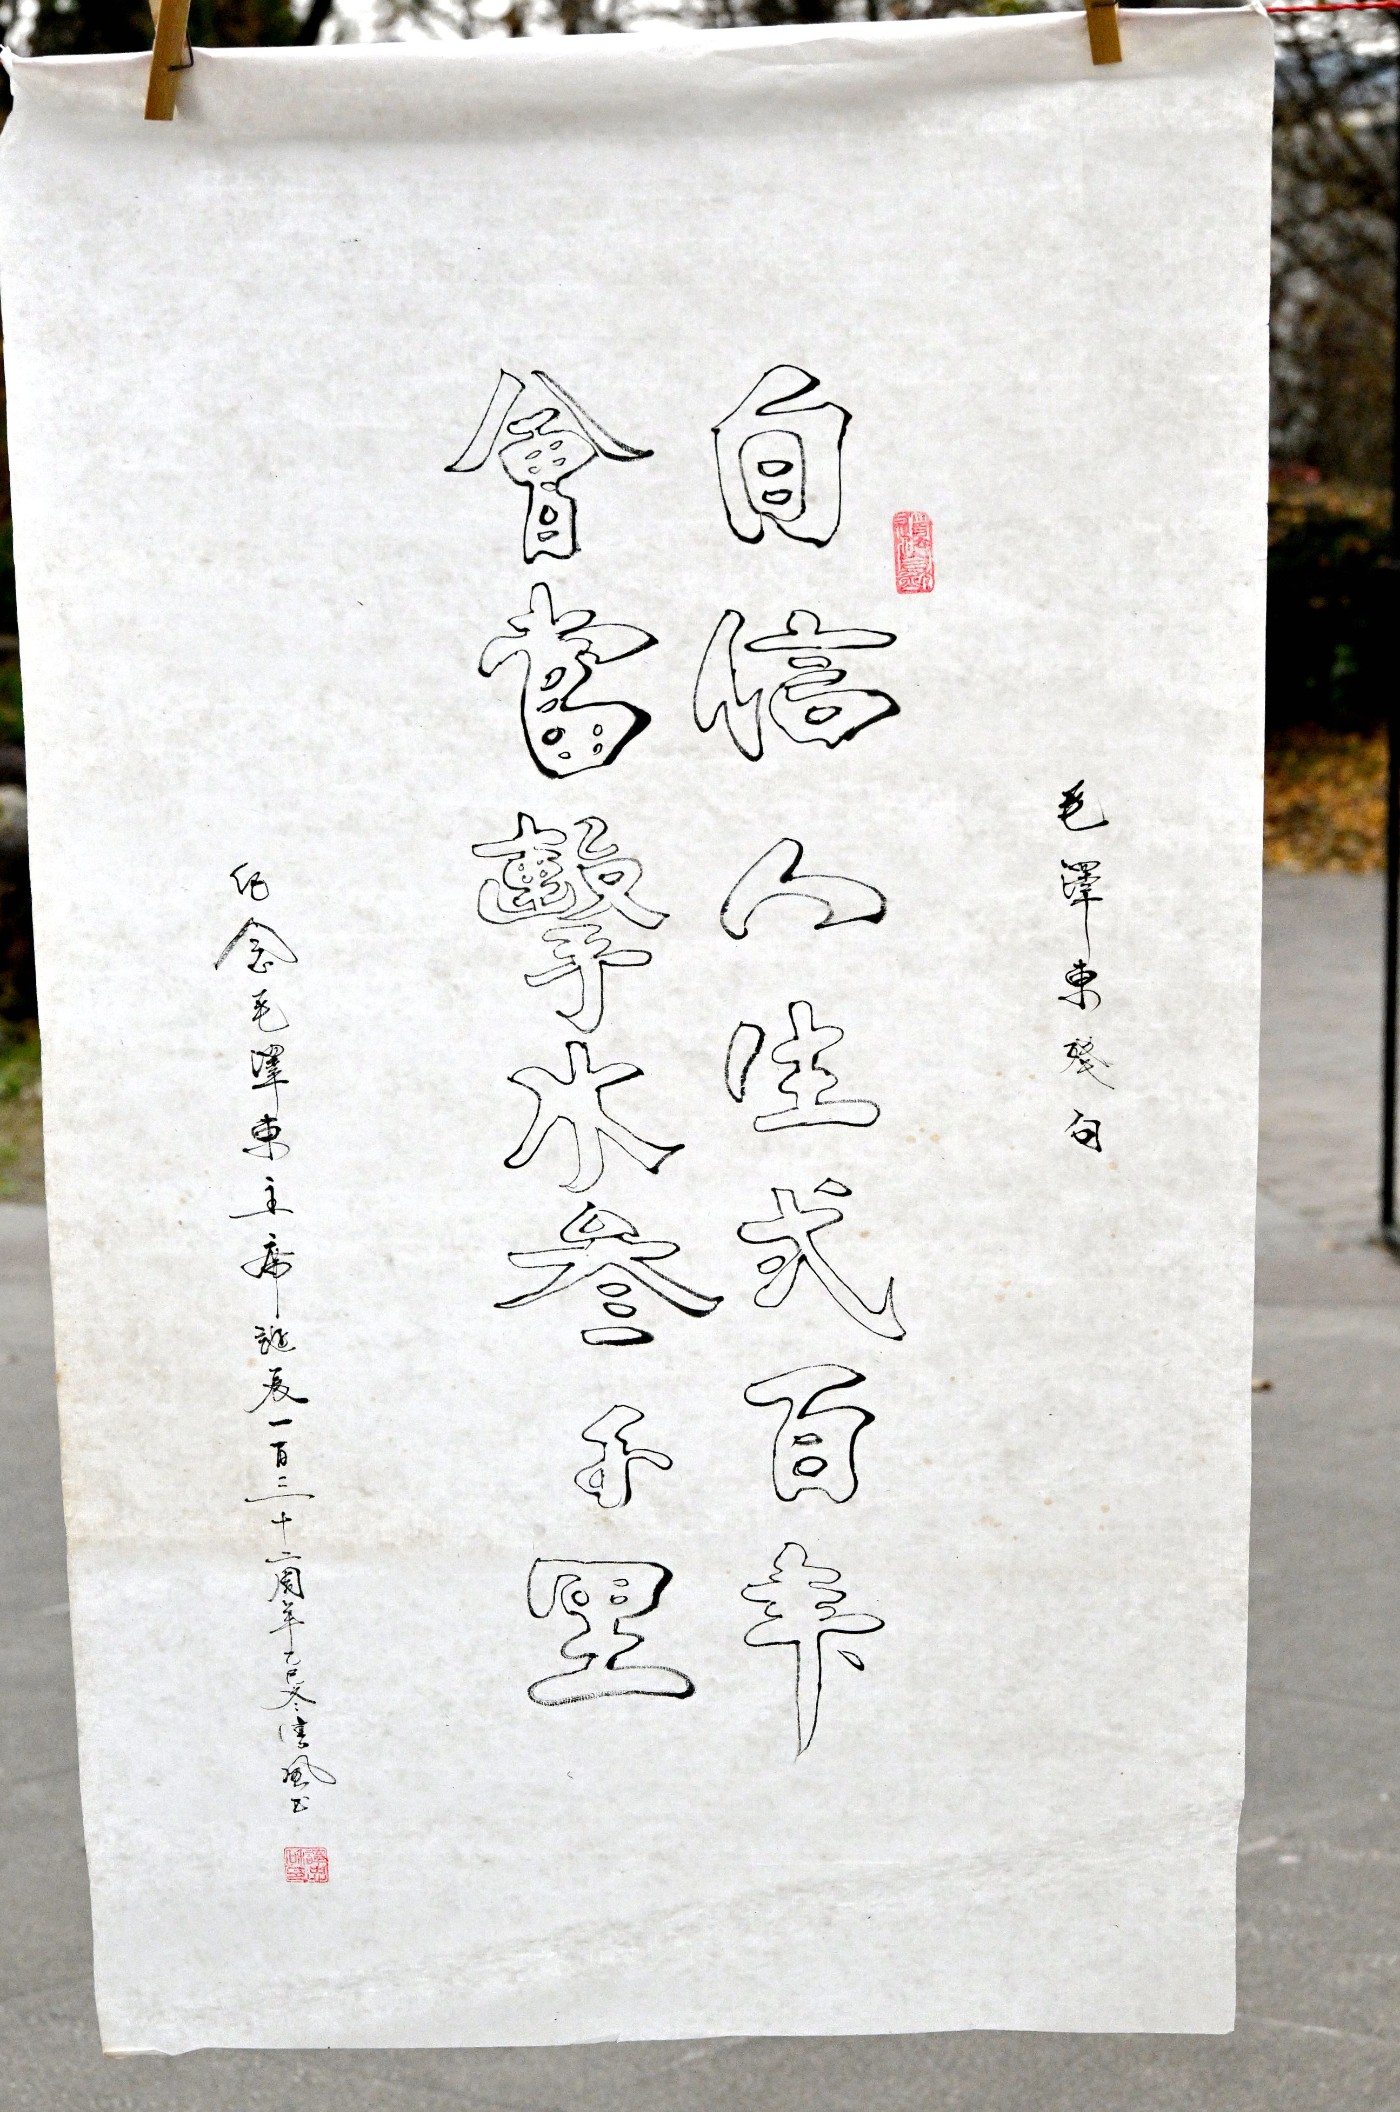 毛澤東殘句
自信人生弍百年
會當擊水叁千里
纪念毛澤東主席誕辰一百三十二周年乙巳冬清風书